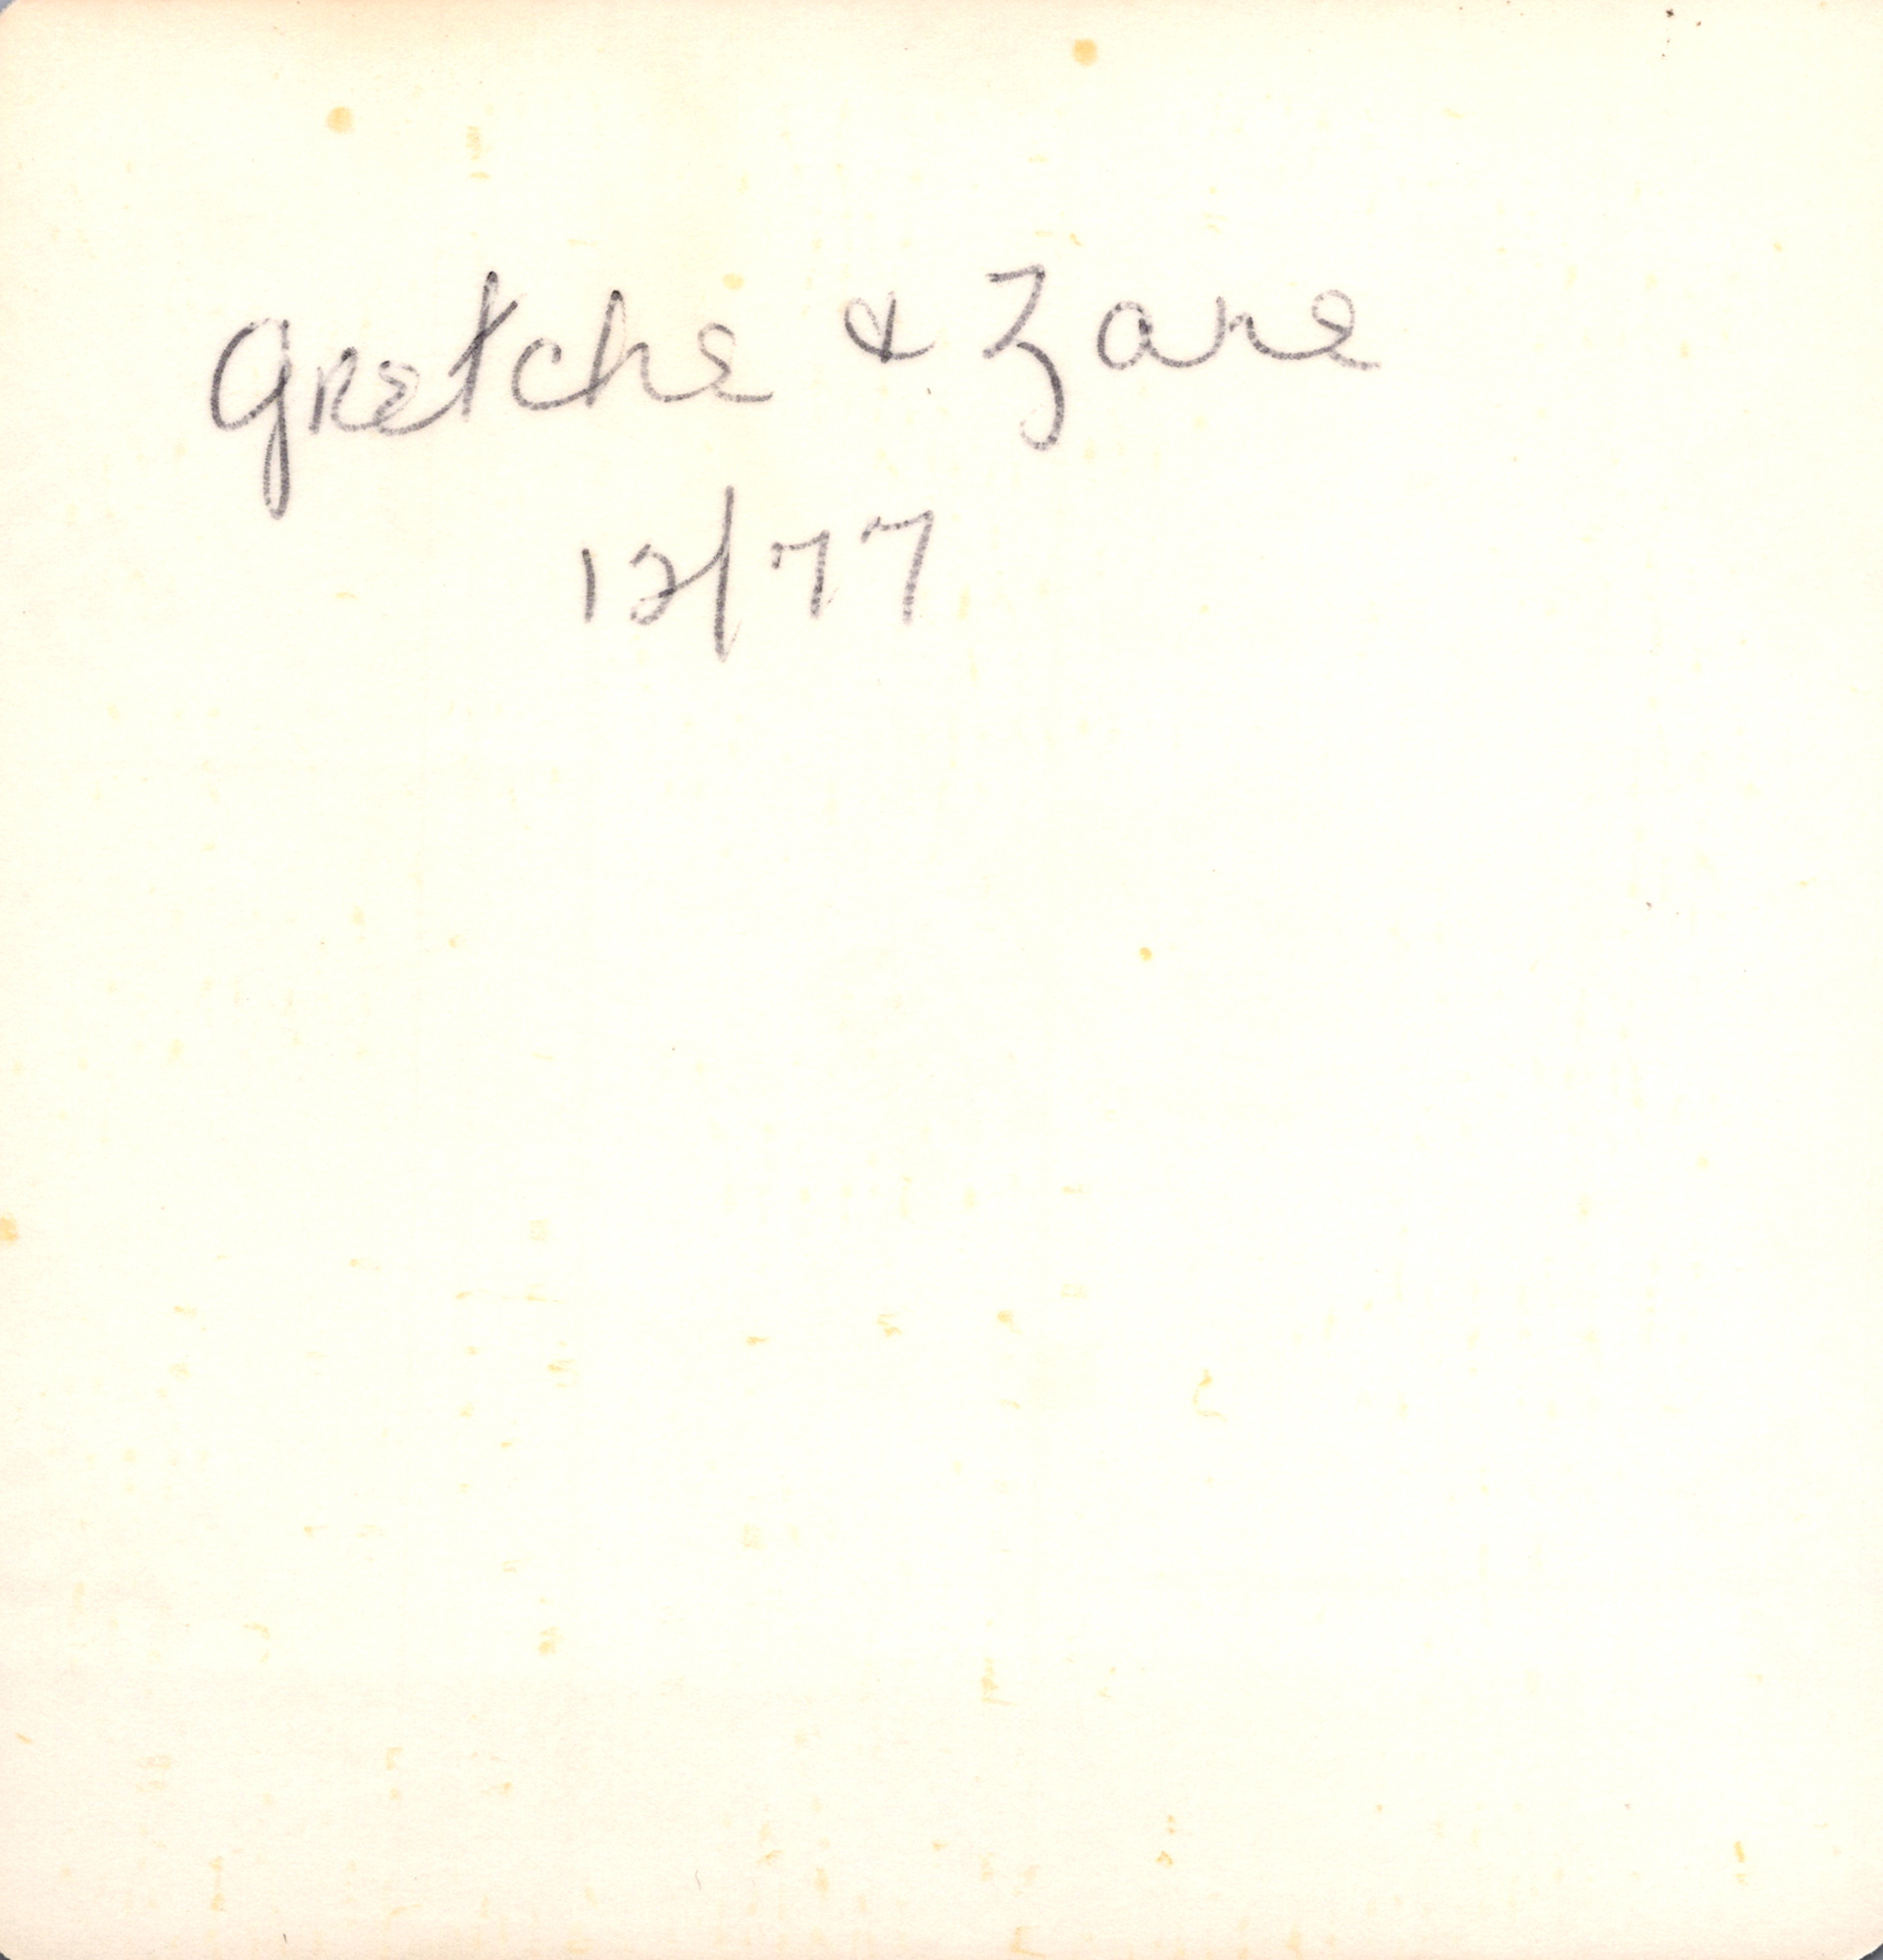 Gretche & Zane
12/77